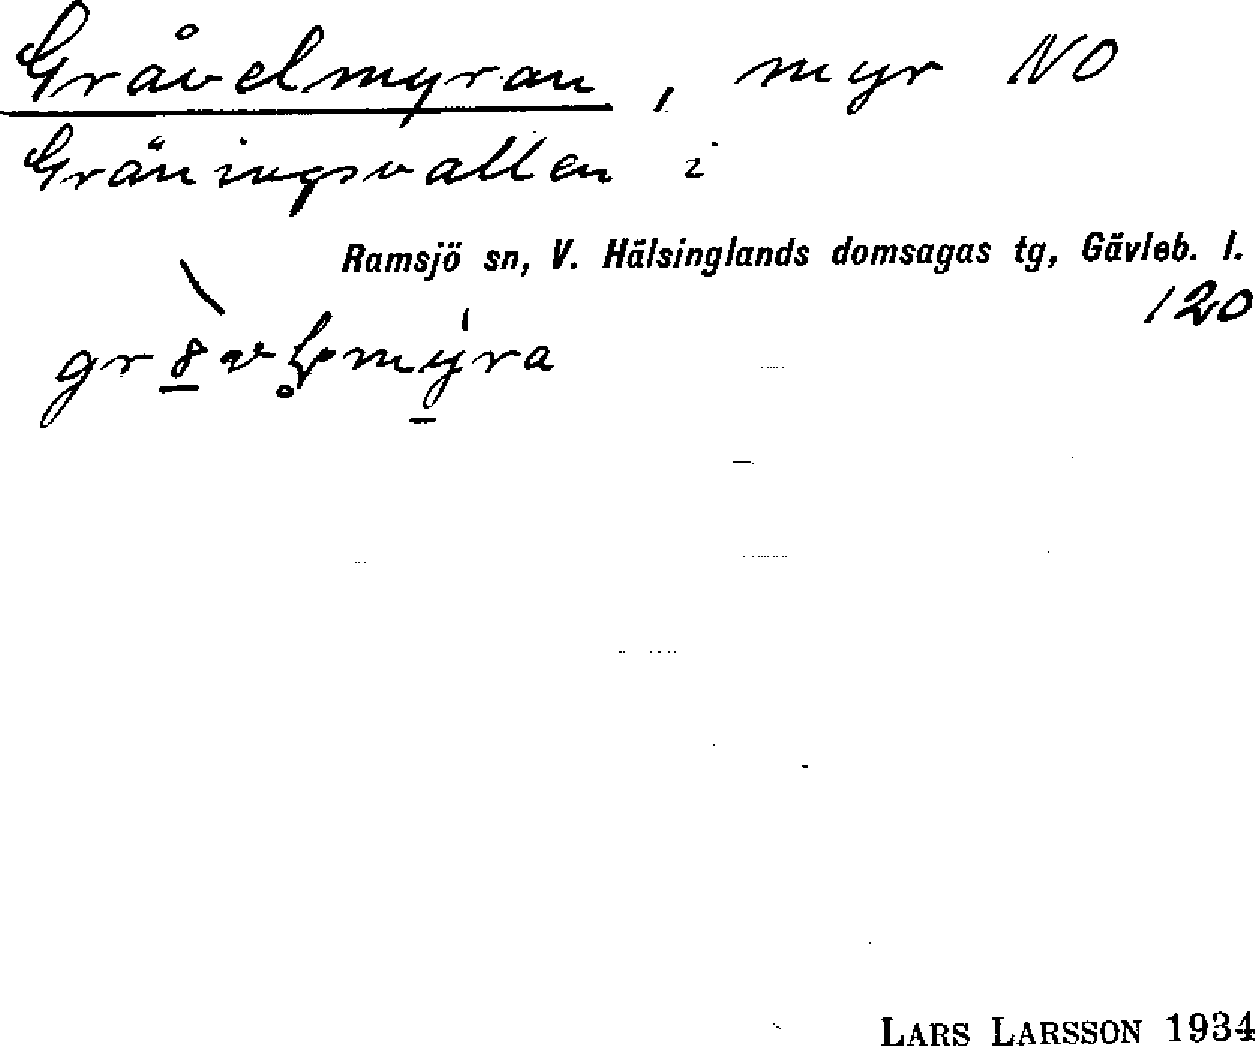 Gråvelmyran, myr NO
Gräningsvallen i
Ramsjö sn, V. Hälsinglands domsagas tg, Gävleb. l.
120
LARS LARSSON 1934